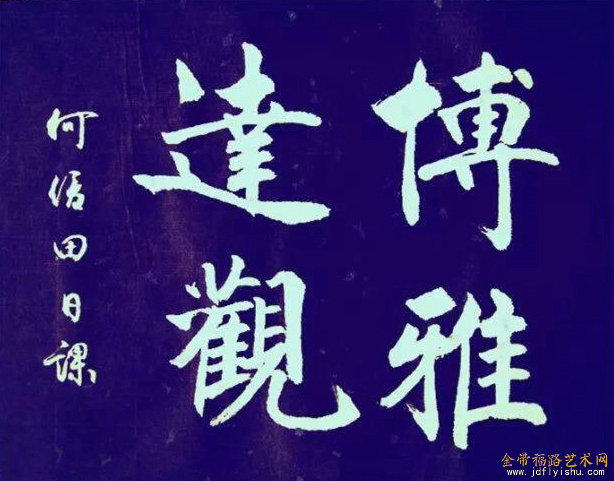 博雅
達觀
何田日课
金带福路艺术网
www.jdflyishu.com